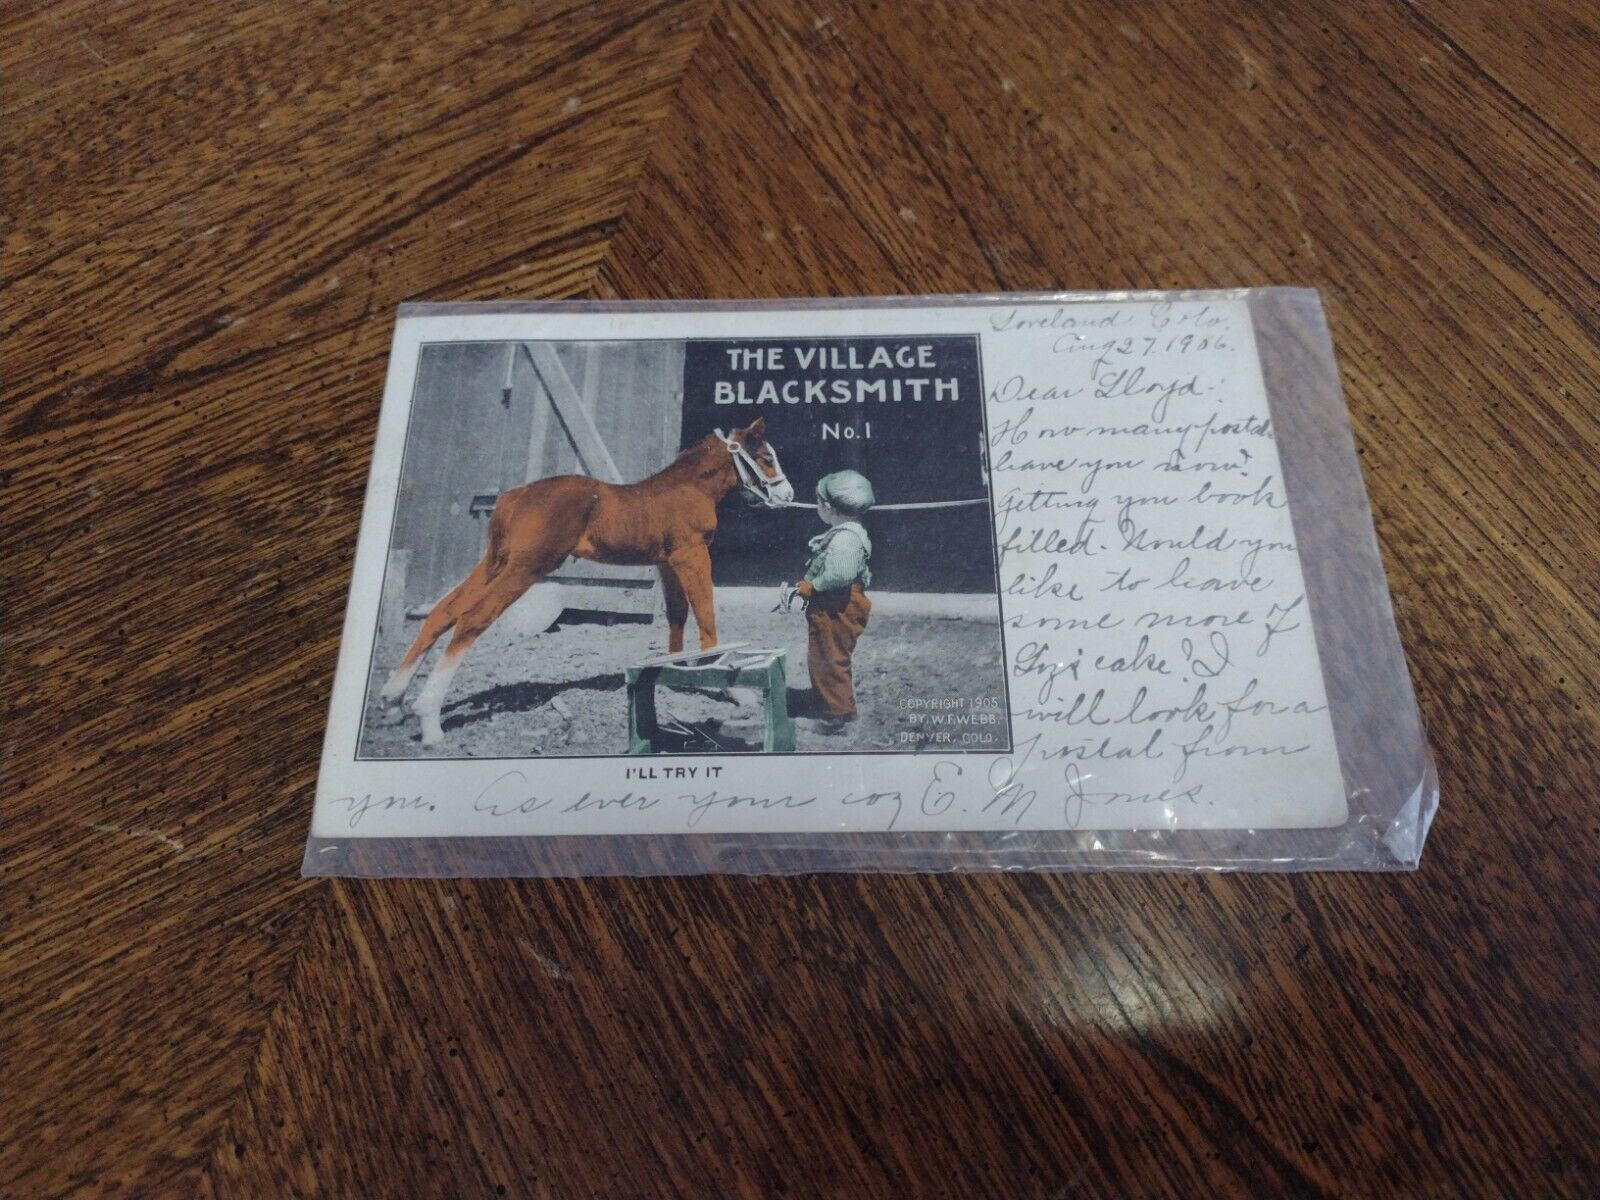 THE VILLAGE
BLACKSMITH
No. 1
COPYRIGHT 1905
BY. W.F. WEBB.
DENVER, COLO.
I'LL TRY IT
Loveland Colo.
Aug 27. 1906.
Dear Lloyd:
How many postals
have you now?
Getting you book
filled. Would you
like to have
some more of
cake? I
will look for a
postal from
you. As ever your coz E. M Jones.